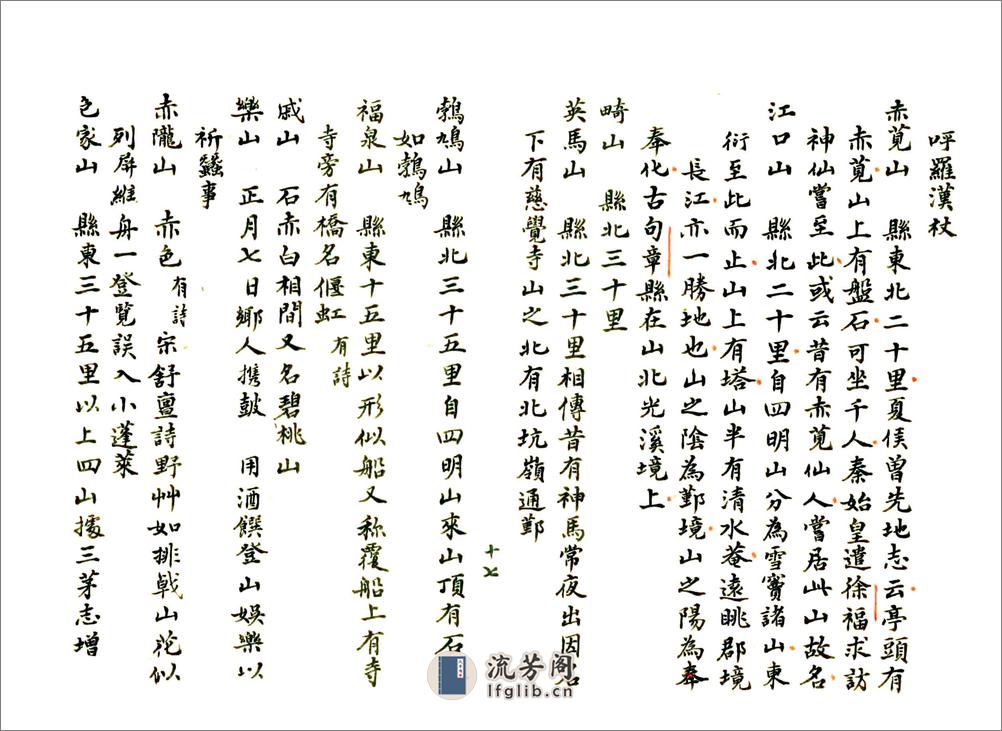 呼羅漢杖
赤莧山　縣東北二十里夏侯曽先地志云亭頭有
赤莧山上有盤石可坐千人秦始皇遣徐福求訪
神仙嘗至此或云昔有赤莧仙人嘗居此山故名
江口山　縣北二十里自四明山分為雪竇諸山東
衍至此而止山上有塔山半有清水菴遠眺郡境
長江亦一勝地也山之陰為鄞境山之陽為奉
奉化古句章縣在山北光溪境上
畸山　縣北三十里
英馬山　縣北三十里相傳昔有神馬常夜出因名
下有慈覺寺山之北有北坑嶺通鄞
十七
鶉鳩山　縣北三十五里自四明山來山頂有石
如鶉鳩
福泉山　縣東十五里以形似船又称覆船上有寺
寺旁有橋名偃虹　有詩
戚山　石赤白相間又名碧桃山
樂山　正月七日鄉人攜鼓　用酒饌登山娛樂以
祈蠶事
赤隴山　赤色　有詩　宋舒亶詩野艸如排戟山花似
列屏維舟一登覽誤入小蓬萊
色家山　縣東三十五里以上四山據三茅志增
流芳阁
lfglib.cn